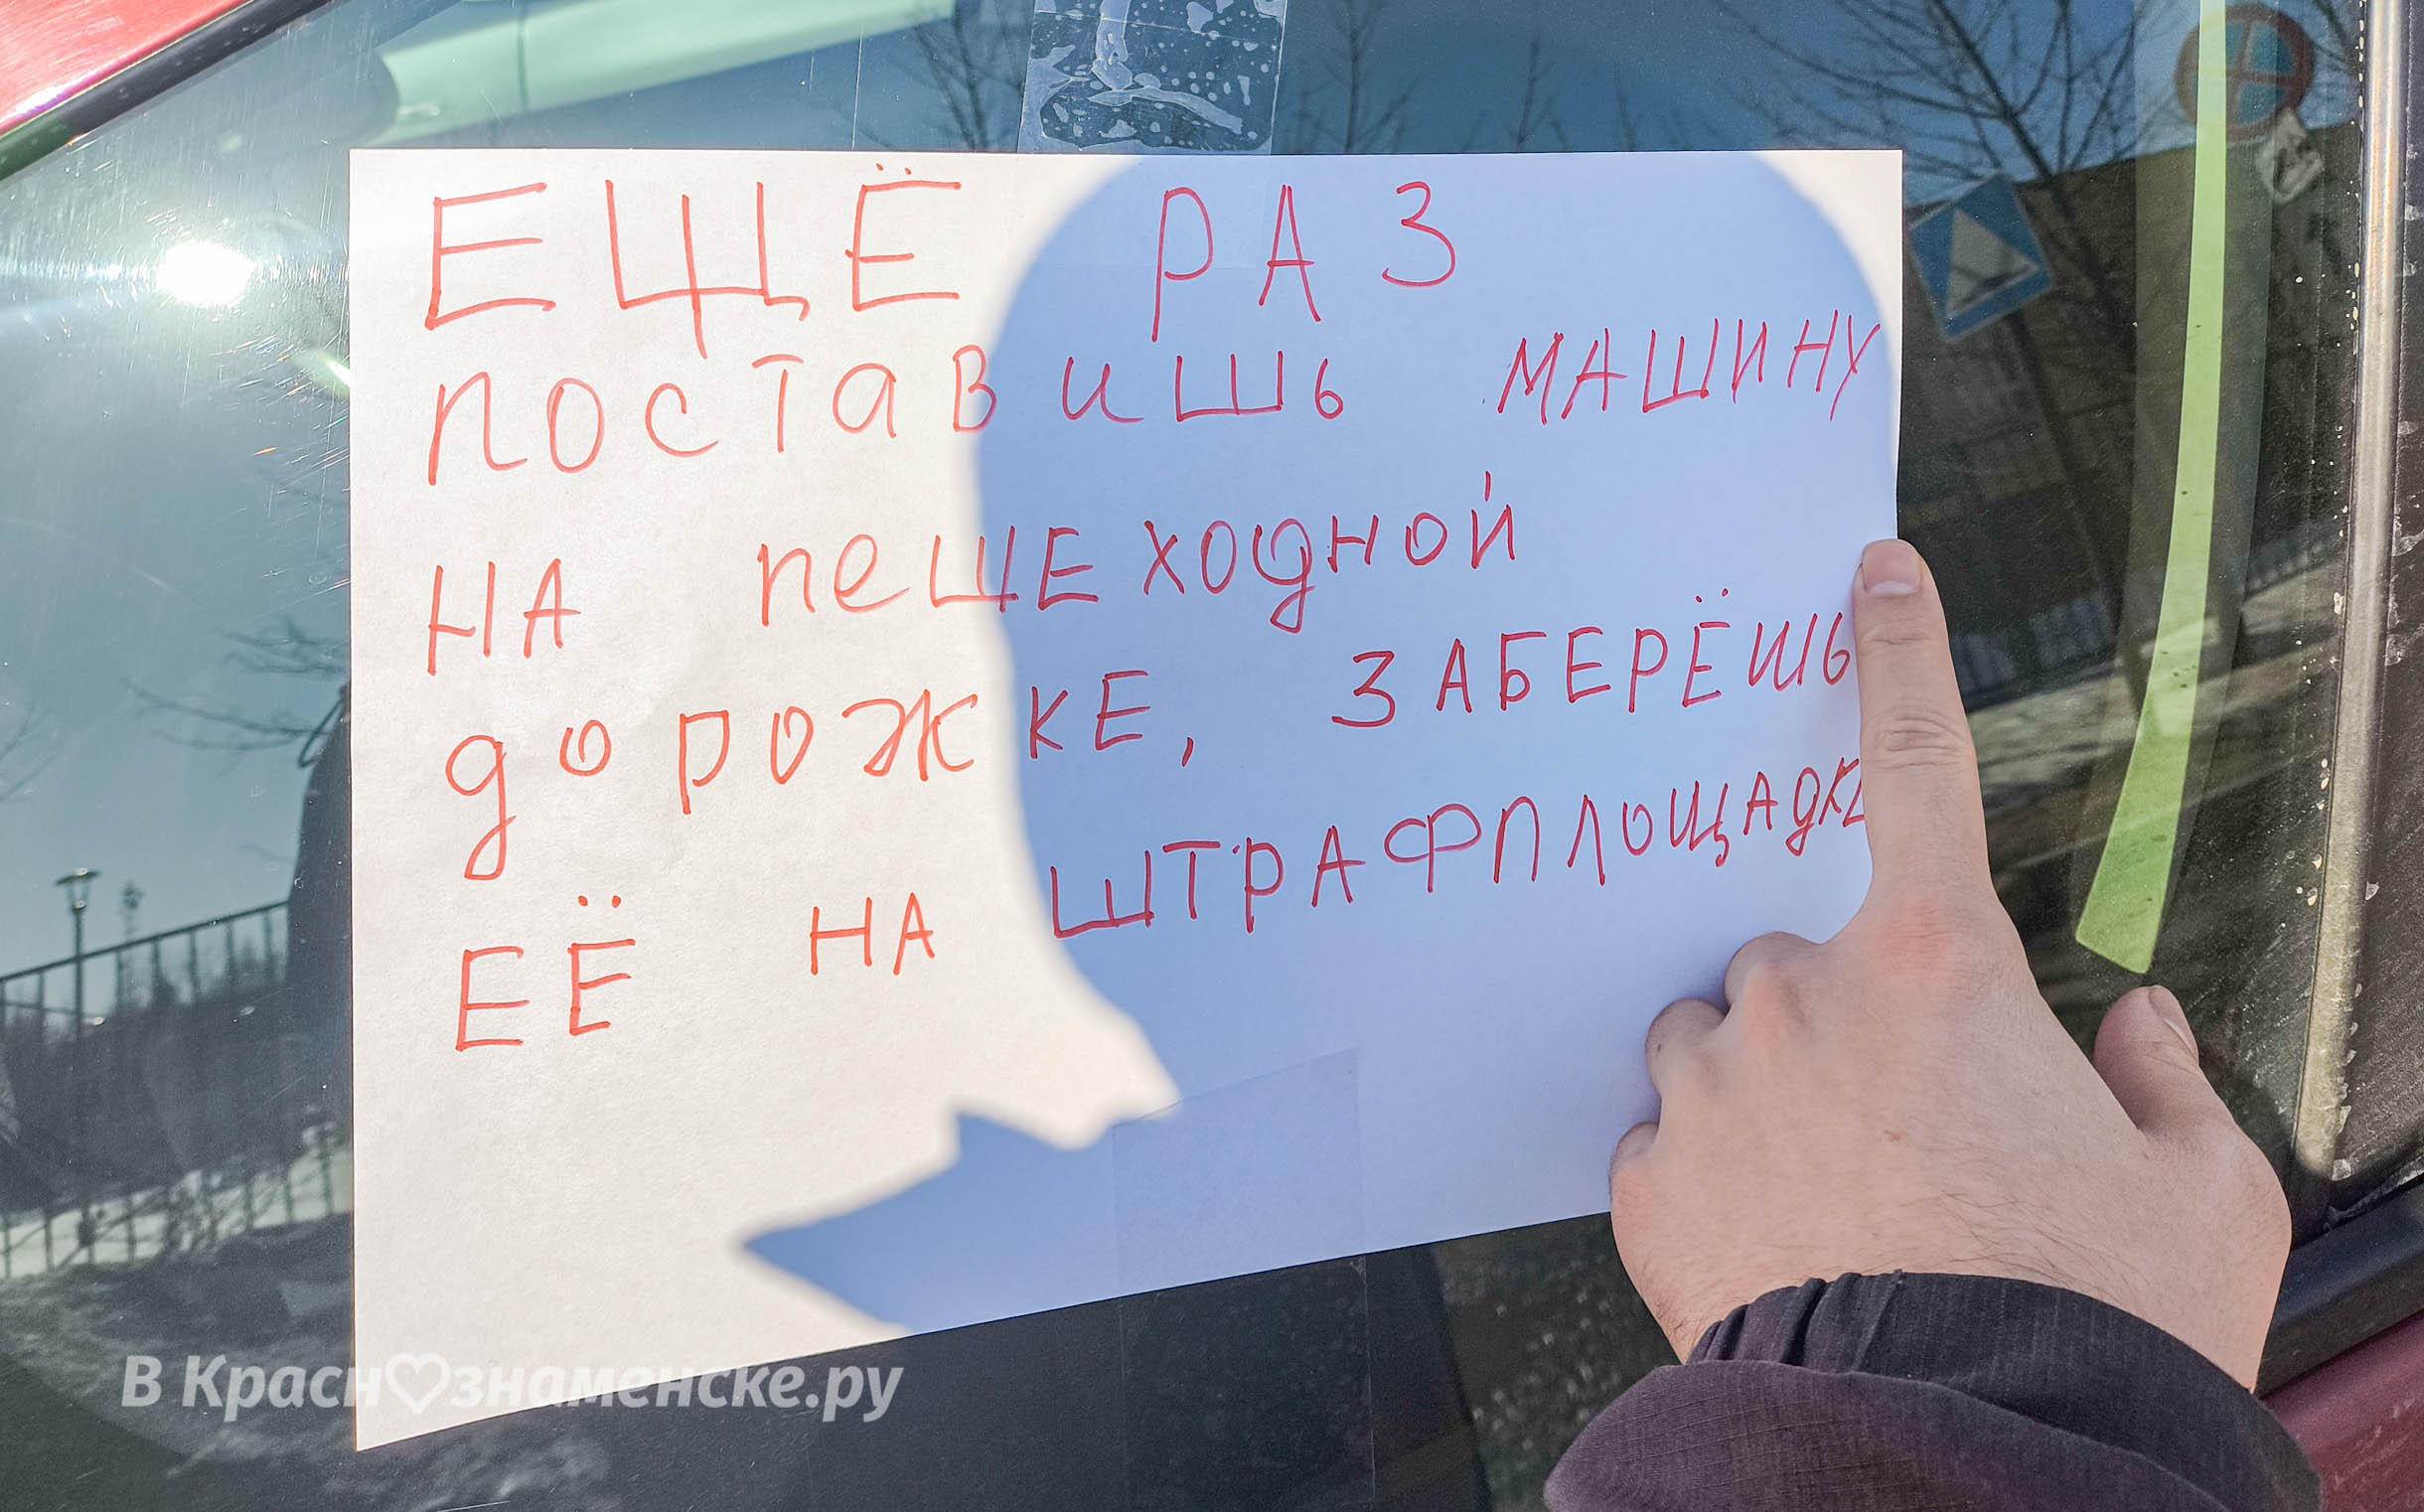 ЕЩЁ РАЗ
поставишь МАШИНУ
НА пешЕходной
дорожКЕ, ЗАБЕРЁШЬ
ЕЁ НА ШТРАФПЛОЩАДКЕ
В Красн♡знаменске.ру